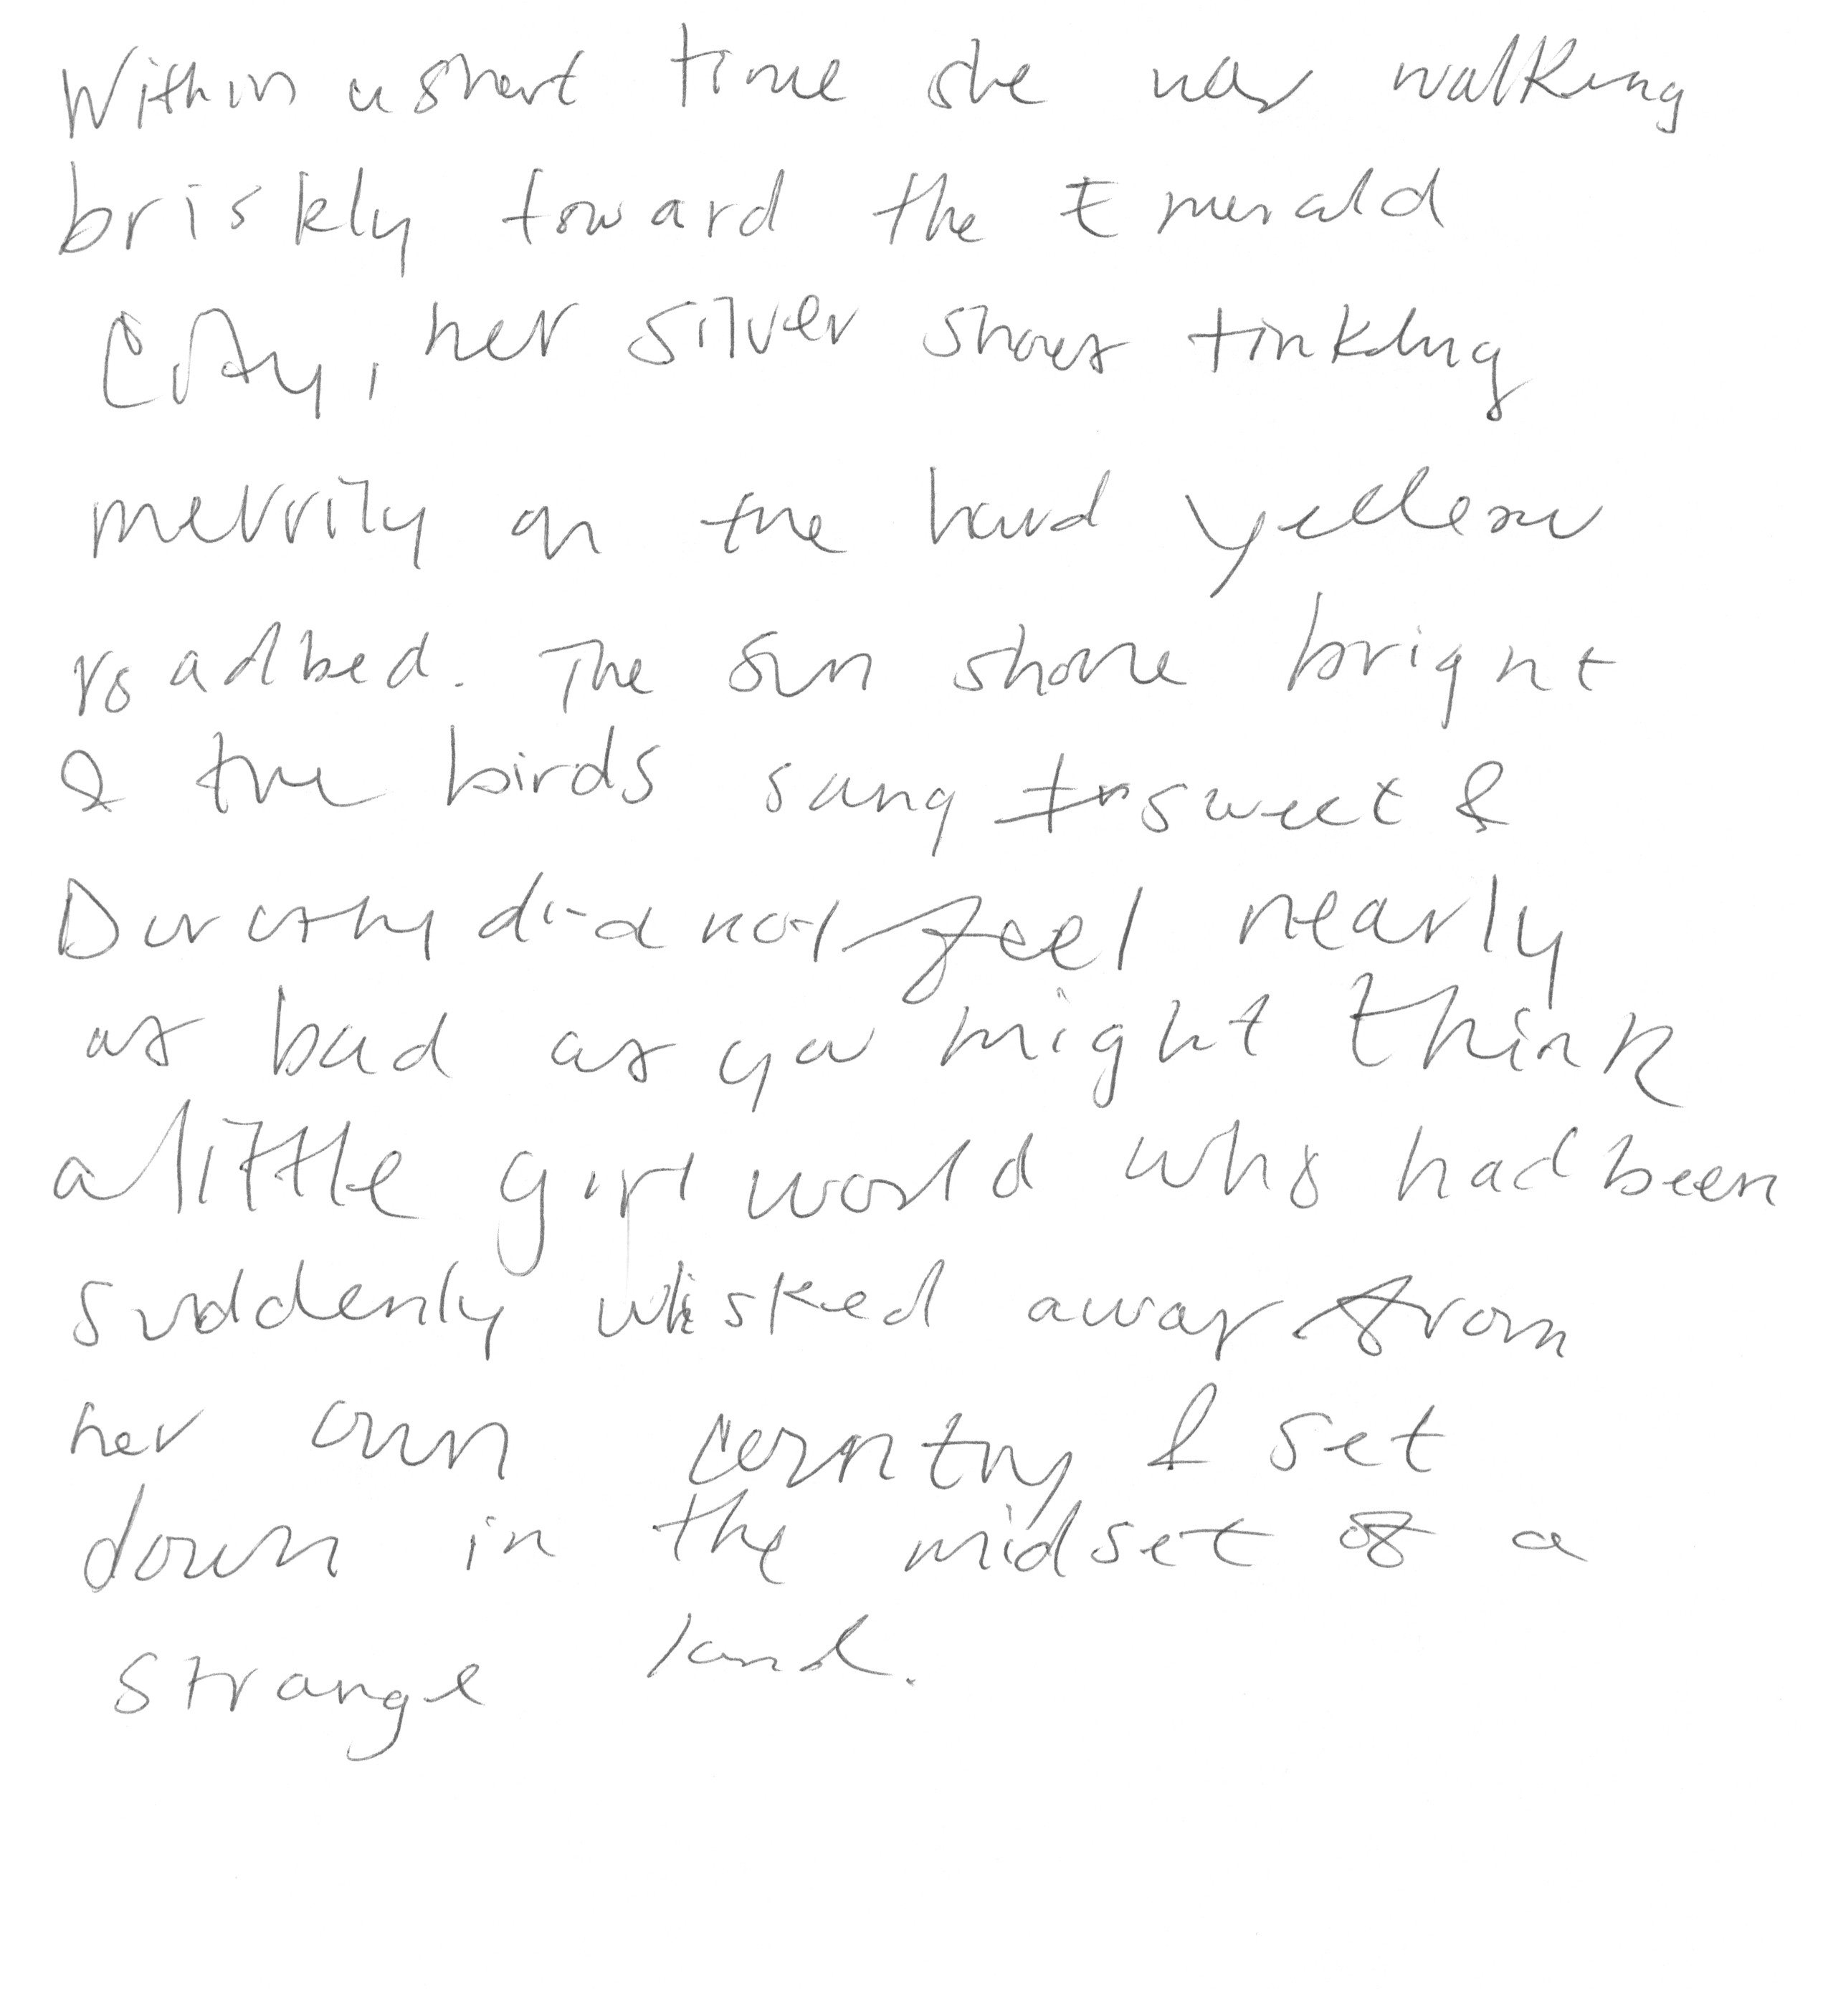 Within a short time she was walking
briskly toward the Emerald
City, her silver shoes tinkling
merrily on the hard yellow
roadbed. The sun shone bright
& the birds sang sweet &
Dorothy did not feel nearly
as bad as you might think
a little girl world who had been
suddenly whisked away from
her own country & set
down in the midset of a
strange land.